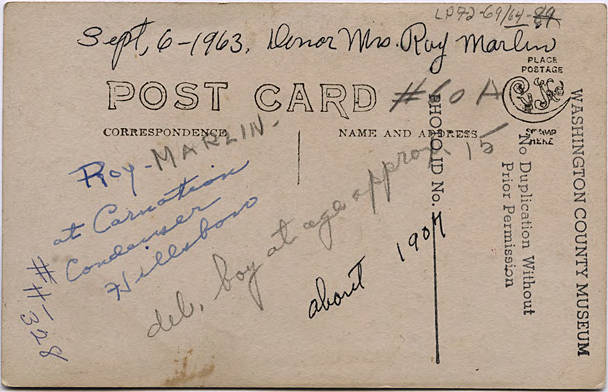 LP72-69/64-
Sept, 6-1963. Donor Mrs. Roy Marlin
PLACE
POSTAGE
STAMP
HERE
POST CARD
#60A
CORRESPONDENCE
NAME AND ADDRESS
Roy-MARLIN-
at Carnation
Condenser
Hillsboro
del. boy at age approx 15
about 1907
##-328
PHOTO ID No.
No Duplication Without
Prior Permission
WASHINGTON COUNTY MUSEUM